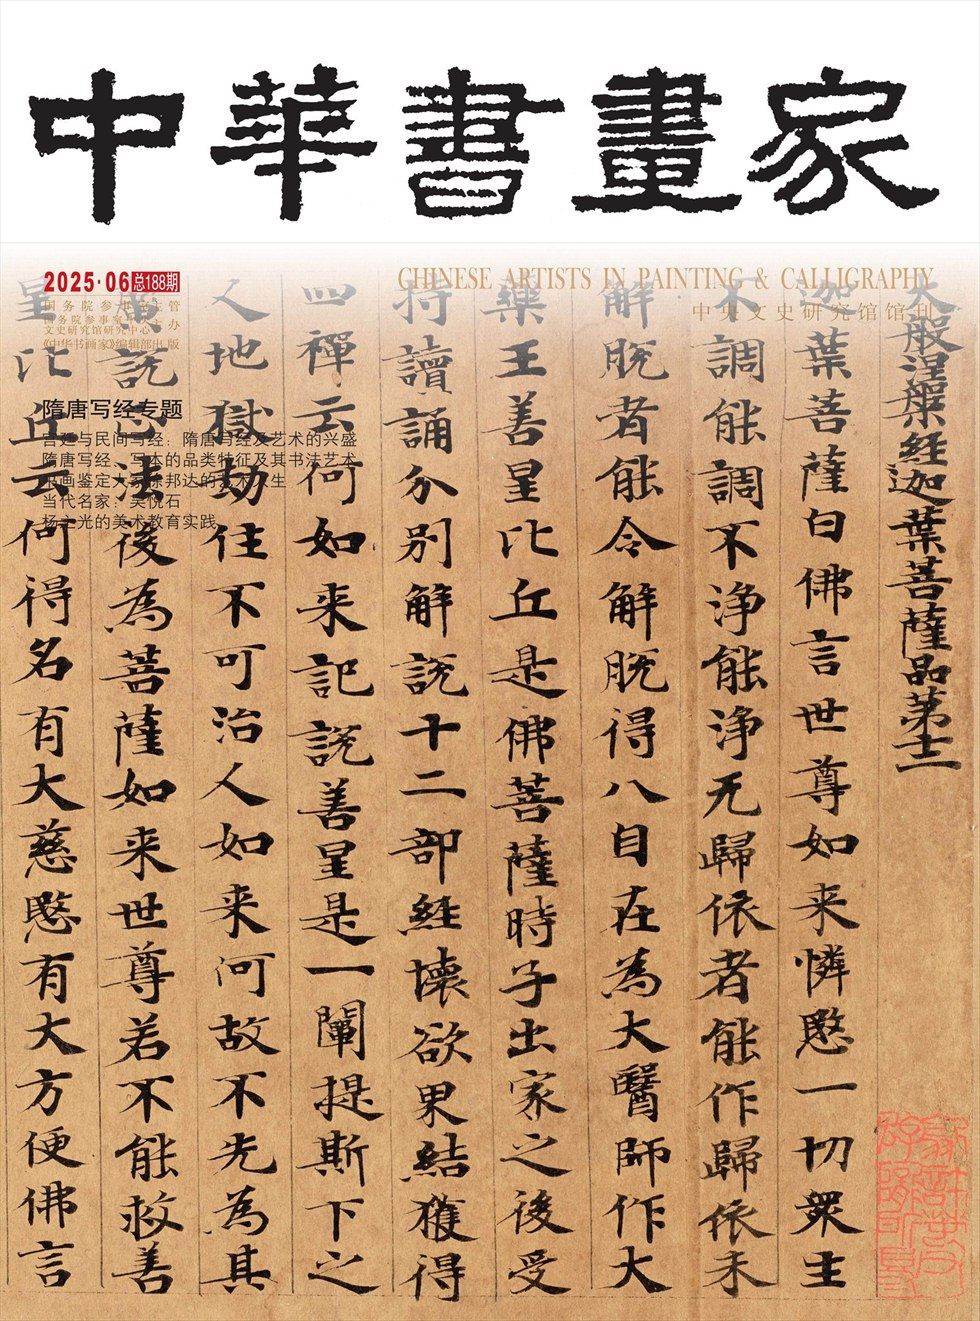 中華書畫家
2025·06 总188期
CHINESE ARTISTS IN PAINTING & CALLIGRAPHY
中央文史研究馆馆刊
国务院参事室主管
国务院参事室主办
文史研究馆研究中心
《中华书画家》编辑部出版
隋唐写经专题
宫廷与民间写经：隋唐写经及艺术的兴盛
隋唐写经、写本的品类特征及其书法艺术
书画鉴定大家徐邦达的艺术人生
当代名家：吴悦石
杨之光的美术教育实践
大般涅槃經迦葉菩薩品第十二
迦葉菩薩白佛言世尊如来憐愍一切眾生
不調能調不淨能淨无歸依者能作歸依未
解脫者能令解脫得八自在為大醫師作大
藥王善星比丘是佛菩薩時子出家之後受
持讀誦分別解說十二部經壞欲界結獲得
四禪云何如来記說善星是一闡提斯下之
人地獄劫住不可治人如来何故不先為其
演說正法後為菩薩如来世尊若不能救善
星比丘云何得名有大慈愍有大方便佛言